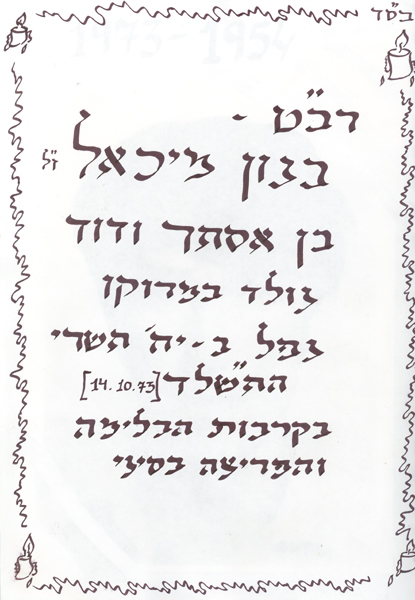 בס"ד
רב"ט -
בנון מיכאל ז"ל
בן אסתר ודוד
נולד במרוקו
נפל ב-יח' תשרי
התשל"ד [14.10.73]
בקרבות הבלימה
והפריצה בסיני